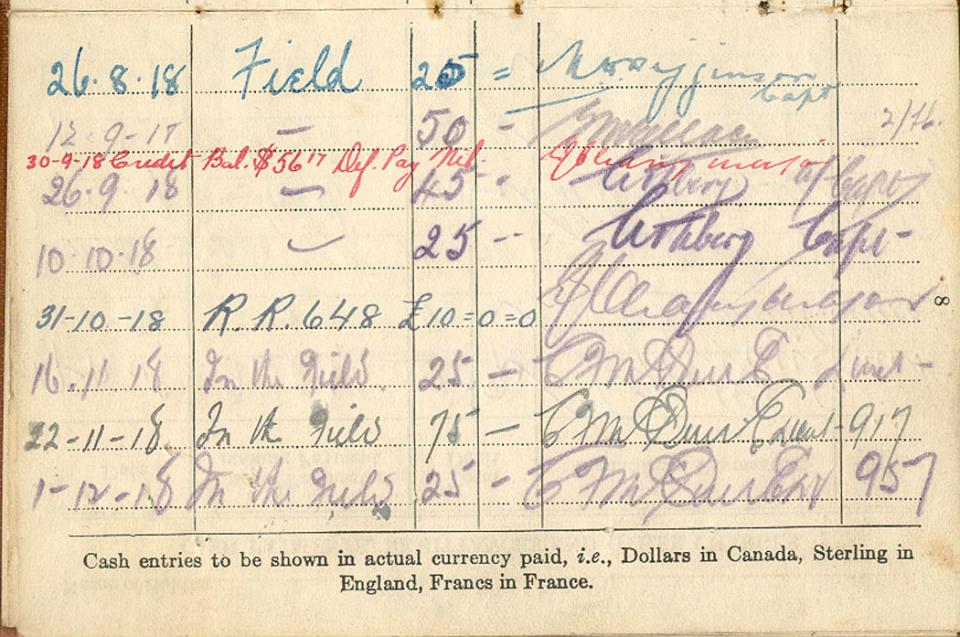 26.8.18 Field 25 = Capt
12 9-17 — 50 - 2/76.
30-9-18 Credit Bal. $56 17 Def. Pay Nil. major
26.9 18 — 45 - a/Capt
10.10.18 — 25 -- Capt-
31-10-18 R. R. 648 £10=0=0 major
8
16.11.18 In the Field. 25 — Lieut-
22-11-18 In the Field 75 — Lieut- 917
1-12-18 In the Field 25 - 957
Cash entries to be shown in actual currency paid, i.e., Dollars in Canada, Sterling in
England, Francs in France.